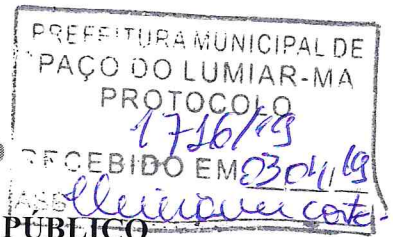 PREFEITURA MUNICIPAL DE
PAÇO DO LUMIAR-MA
PROTOCOLO
1716/19
RECEBIDO EM 03/04/19
ASS
PÚBLICO